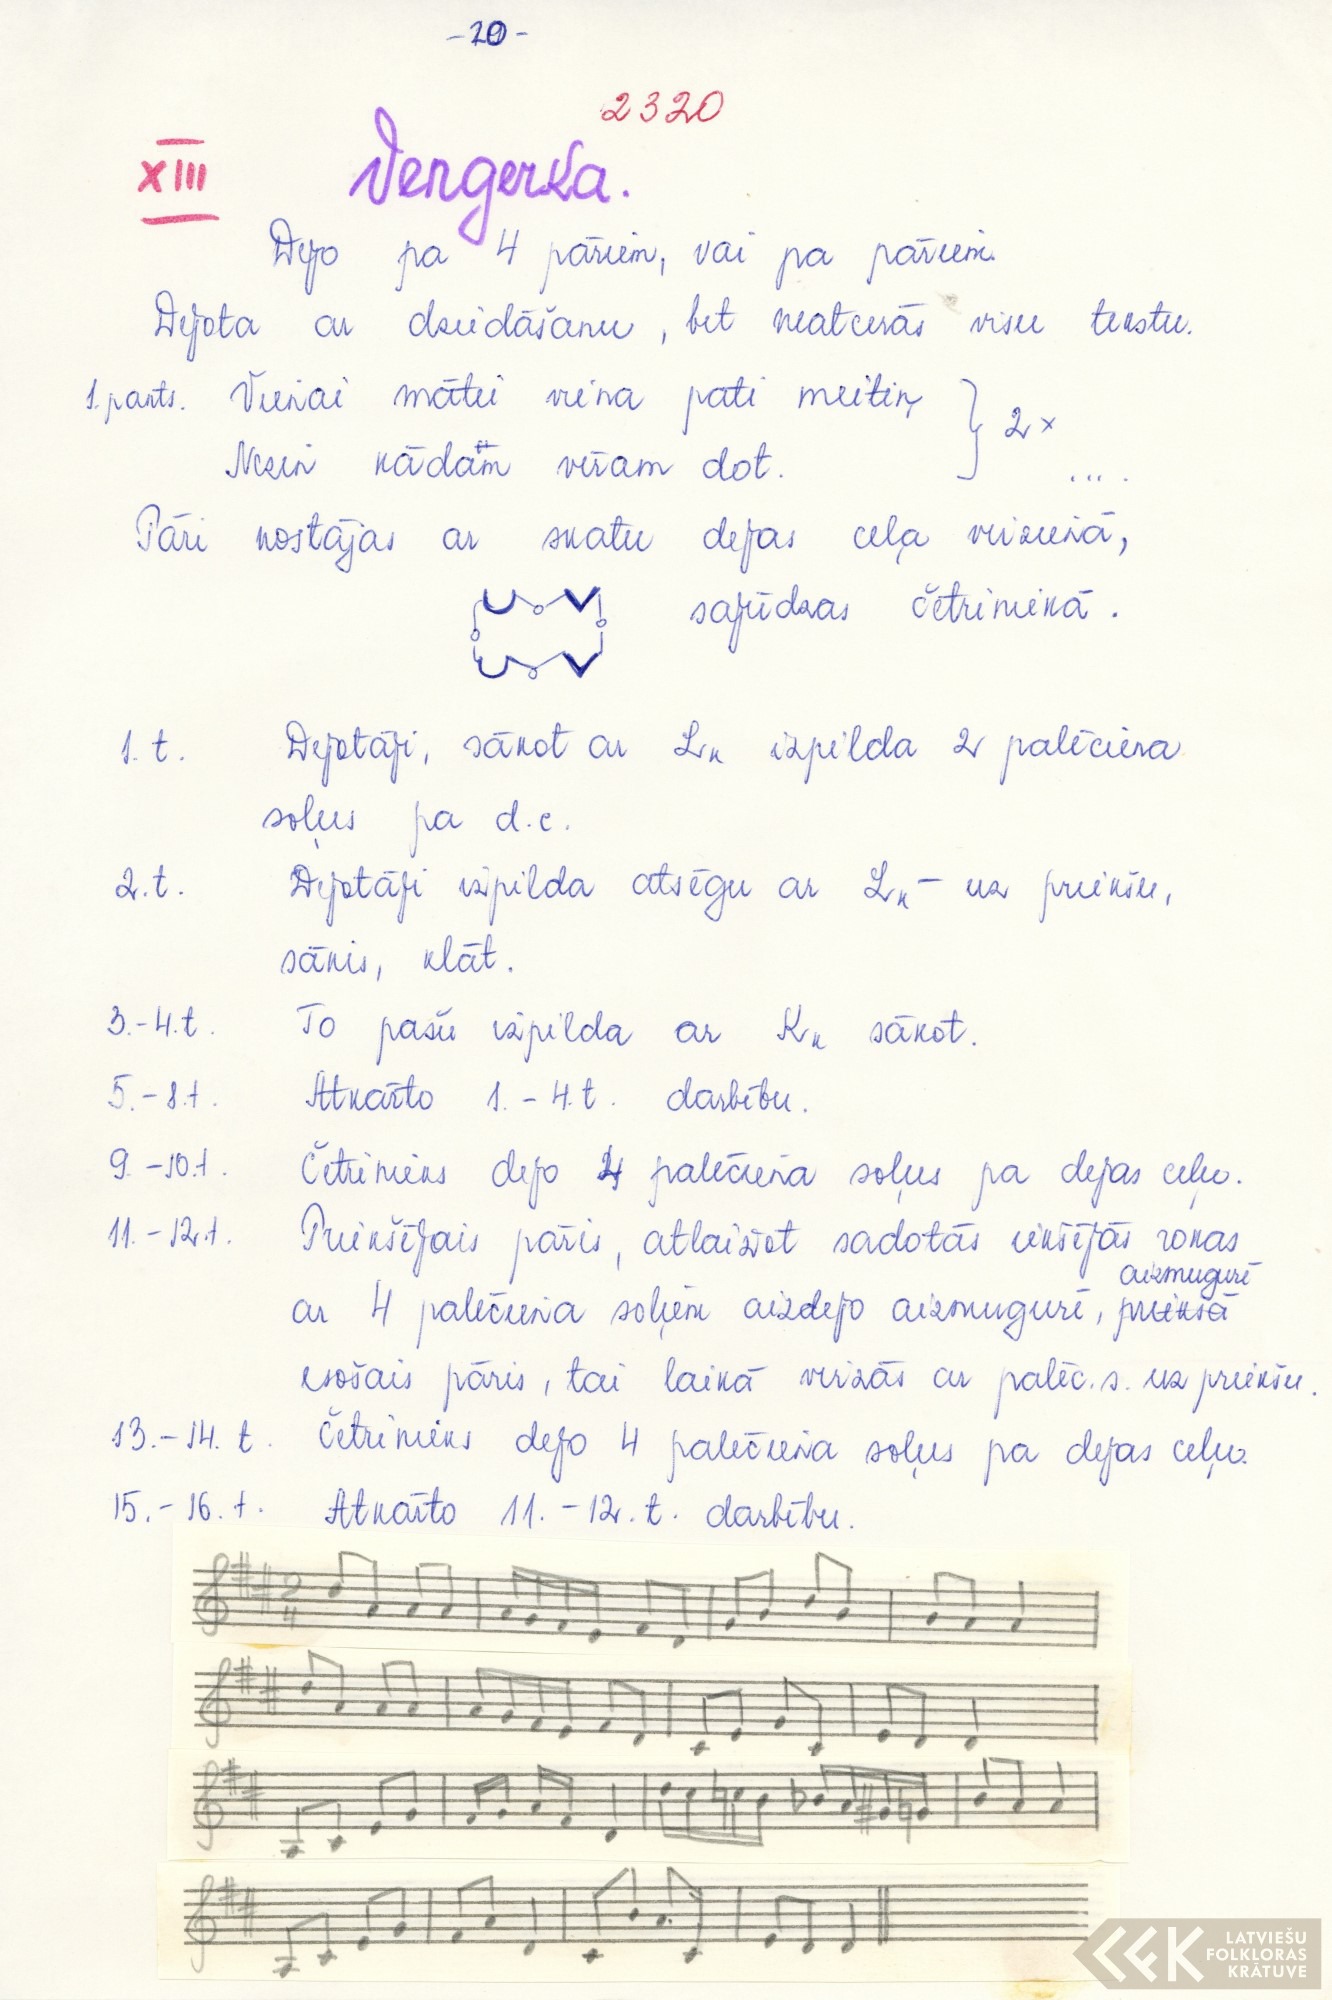 -20-
2320
XIII Vengerka.
Dejo pa 4 pāriem, vai pa pāriem.
Dejota ar dziedāšanu, bet neatcerās visu tekstu.
1. pants. Vienai mātei viena pati meitiņ } 2 x
Nezin kādam vīram dot. ....
Pāri nostājas ar skatu dejas ceļa virzienā,
sajūdzas četriniekā.
1. t. Dejotāji, sākot ar Lk izpilda 2 palēciena
soļus pa d.c.
2. t. Dejotāji izpilda atsēgu ar Lk - uz priekšu,
sānis, klāt.
3.-4.t. To pašu izpilda ar Kk sākot.
5.-8.t. Atkārto 1.-4.t. darbību.
9.-10.t. Četrinieks dejo 4 palēciena soļus pa dejas ceļu.
11.-12.t. Priekšējais pāris, atlaižot sadotās iekšējās rokas
aizmugurē
ar 4 palēciena soļiem aizdejo aizmugurē, priekšā
esošais pāris, tai laikā virzās ar palēc. s. uz priekšu.
13.-14. t. Četrinieks dejo 4 palēciena soļus pa dejas ceļu.
15.-16.t. Atkārto 11.-12.t. darbību.
2
4
LATVIEŠU
FOLKLORAS
KRĀTUVE